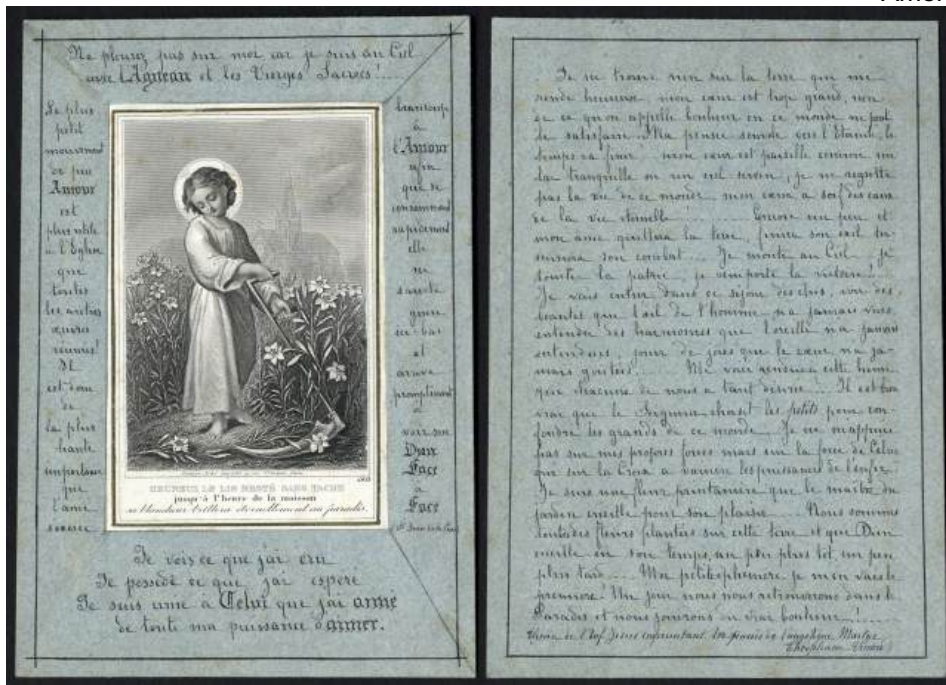 Ne pleurez pas sur moi car je suis au Ciel
avec l'Agneau et les Vierges Sacrées!....
Le plus
petit
mouvement
de pur
Amour
est
plus utile
à l'Eglise
que
toutes
les autres
œuvres
réunies!
Il
est donc
de
la plus
haute
importance
que
l'âme
s'exerce
beaucoup
à
l'Amour
afin
que se
consommant
rapidement
elle
ne
s'arrête
guère
ici-bas
et
arrive
promptement
à
voir son
Dieu
Face
à
Face
HEUREUX LE LIS RESTÉ SANS TACHE
jusqu'à l'heure de la moisson
sa blancheur brillera éternellement au paradis.
Je vois ce que j'ai cru
Je possède ce que j'ai espéré
Je suis unie à Celui que j'ai aimé
de toute ma puissance d'aimer.
Je ne trouve rien sur la terre qui me
rende heureuse, mon cœur est trop grand, rien
de ce qu'on appelle bonheur en ce monde ne peut
le satisfaire. Ma pensée s'envole vers l'Eternité, le
temps va finir! mon cœur est paisible comme un
lac tranquille ou un ciel serein; je ne regrette
pas la vie de ce monde, mon cœur a soif des eaux
de la vie éternelle! ........ Encore un peu et
mon âme quittera la terre, finira son exil, ter-
minera son combat.... Je monte au Ciel... je
touche la patrie, je remporte la victoire!....
Je vais entrer dans ce séjour des élus, voir des
beautés que l'œil de l'homme n'a jamais vues,
entendre des harmonies que l'oreille n'a jamais
entendues, jouir de joies que le cœur n'a ja-
mais goûtées...... Me voici rendue à cette heure
que chacune de nous a tant désirée!.. Il est bien
vrai que le Seigneur choisit les petits pour con-
fondre les grands de ce monde. Je ne m'appuie
pas sur mes propres forces mais sur la force de Celui
qui sur la Croix a vaincu les puissances de l'enfer.
Je suis une fleur printanière que le maître du
jardin cueille pour son plaisir... Nous sommes
toutes des fleurs plantées sur cette terre et que Dieu
cueille en son temps, un peu plus tôt, un peu
plus tard.... Moi petite éphémère je m'en vais la
première! Un jour nous nous retrouverons dans le
Paradis et nous jouirons du vrai bonheur!....
Thérèse de l'Enf. Jésus empruntant les pensées de l'angélique Martyr
Théophane Vénard